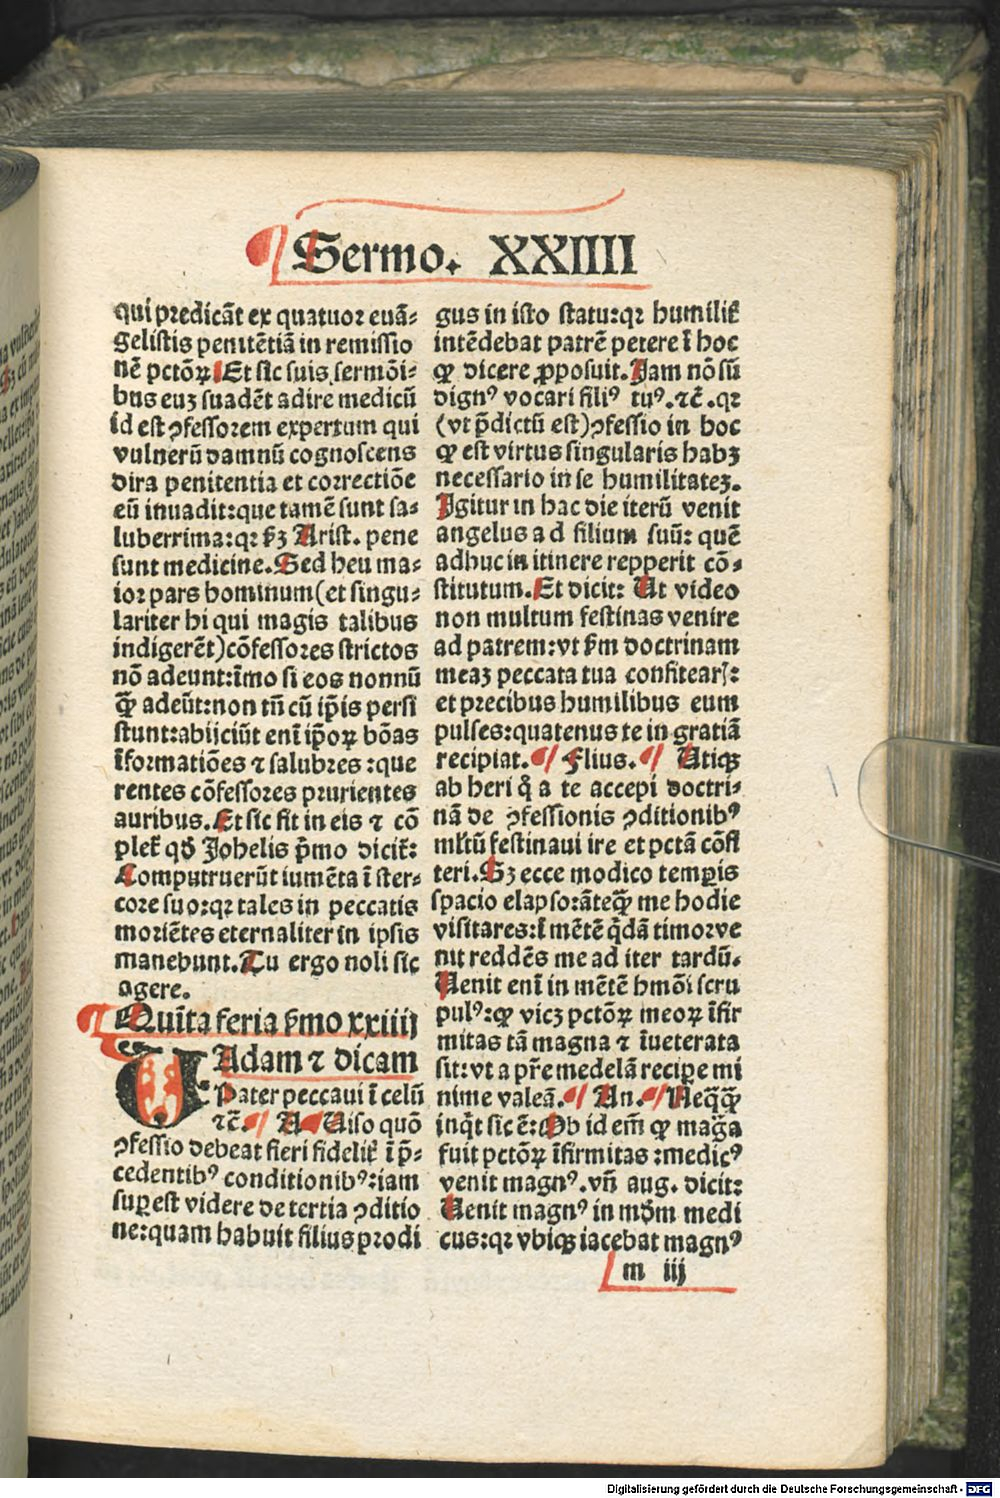 Sermo. XXIIII
qui predicāt ex quatuor euā-
gelistis penitētiā in remissio
nē pctōꝝ Et sic suis sermōi-
bus euꝫ suadēt adire medicū
id est ꝯfessorem expertum qui
vulnerū damnū cognoscens
dira penitentia et correctiōe
eū inuadit:que tamē sunt sa-
luberrima:qꝛ ẜꝫ Arist. pene
sunt medicine. Sed heu ma-
ior pars hominum (et singu-
lariter hi qui magis talibus
indigerēt) cōfessores strictos
nō adeunt:īmo si eos nonnū
ꝙ̄ adeūt:non tn̄ cū ip̄is persi
stunt:abijciūt enī ip̄oꝝ bōas
īformatiōes ⁊ salubres :que
rentes cōfessores prurientes
auribus. Et sic fit in eis ⁊ cō
plet̄ qḋ Johelis p̄mo dicit̄:
Computruerūt iumēta ī ster-
core suo:qꝛ tales in peccatis
moriētes eternaliter in ipsis
manebunt. Tu ergo noli sic
agere.
Quīta feria ẜmo xxiiij
VAdam ⁊ dicam
Pater peccaui ī celū
⁊c̄. A Uiso quō
ꝯfessio debeat fieri fidelit̄ ī p̄-
cedentibꝰ conditionibꝰ:iam
suꝑest videre de tertia ꝯditio
ne:quam habuit filius prodi
gus in isto statu:qꝛ humilit̄
intēdebat patrē petere ī hoc
ꝙ dicere ꝓposuit. Jam nō sū
dignꝰ vocari filiꝰ tuꝰ.⁊c̄.qꝛ
(vt p̄dictū est) ꝯfessio in hoc
ꝙ est virtus singularis habꝫ
necessario in se humilitateꝫ.
Igitur in hac die iterū venit
angelus ad filium suū: quē
adhuc in itinere repperit cō-
stitutum. Et dicit: Ut video
non multum festinas venire
ad patrem:vt ẜm doctrinam
meaꝫ peccata tua confitearꝭ:
et precibus humilibus eum
pulses:quatenus te in gratiā
recipiat. Flius. Utiqꝫ
ab heri q̄ a te accepi doctri-
nā de ꝯfessionis ꝯditionibꝰ
ml̄tū festinaui ire et pctā cōfi
teri. Sꝫ ecce modico temꝑis
spacio elapso:āteꝙ̄ me hodie
visitares:ī mētē q̄dā timor ve
nit reddēs me ad iter tardū.
Uenit enī in mētē hmōi scru
pulꝰ:ꝙ vicꝫ pctōꝝ meoꝝ īfir
mitas tā magna ⁊ īueterata
sit:vt a pr̄e medelā recipe mi
nime valeā. An. Neq̄ꝙ̄
inq̄t sic ē: Ob id em̄ ꝙ mag̃a
fuit pctōꝝ īfirmitas :medicꝰ
venit magnꝰ.vn̄ aug. dicit:
Uenit magnꝰ in mōm medi
cus:qꝛ vbiqꝫ iacebat magnꝰ
m iij
Digitalisierung gefördert durch die Deutsche Forschungsgemeinschaft - DFG